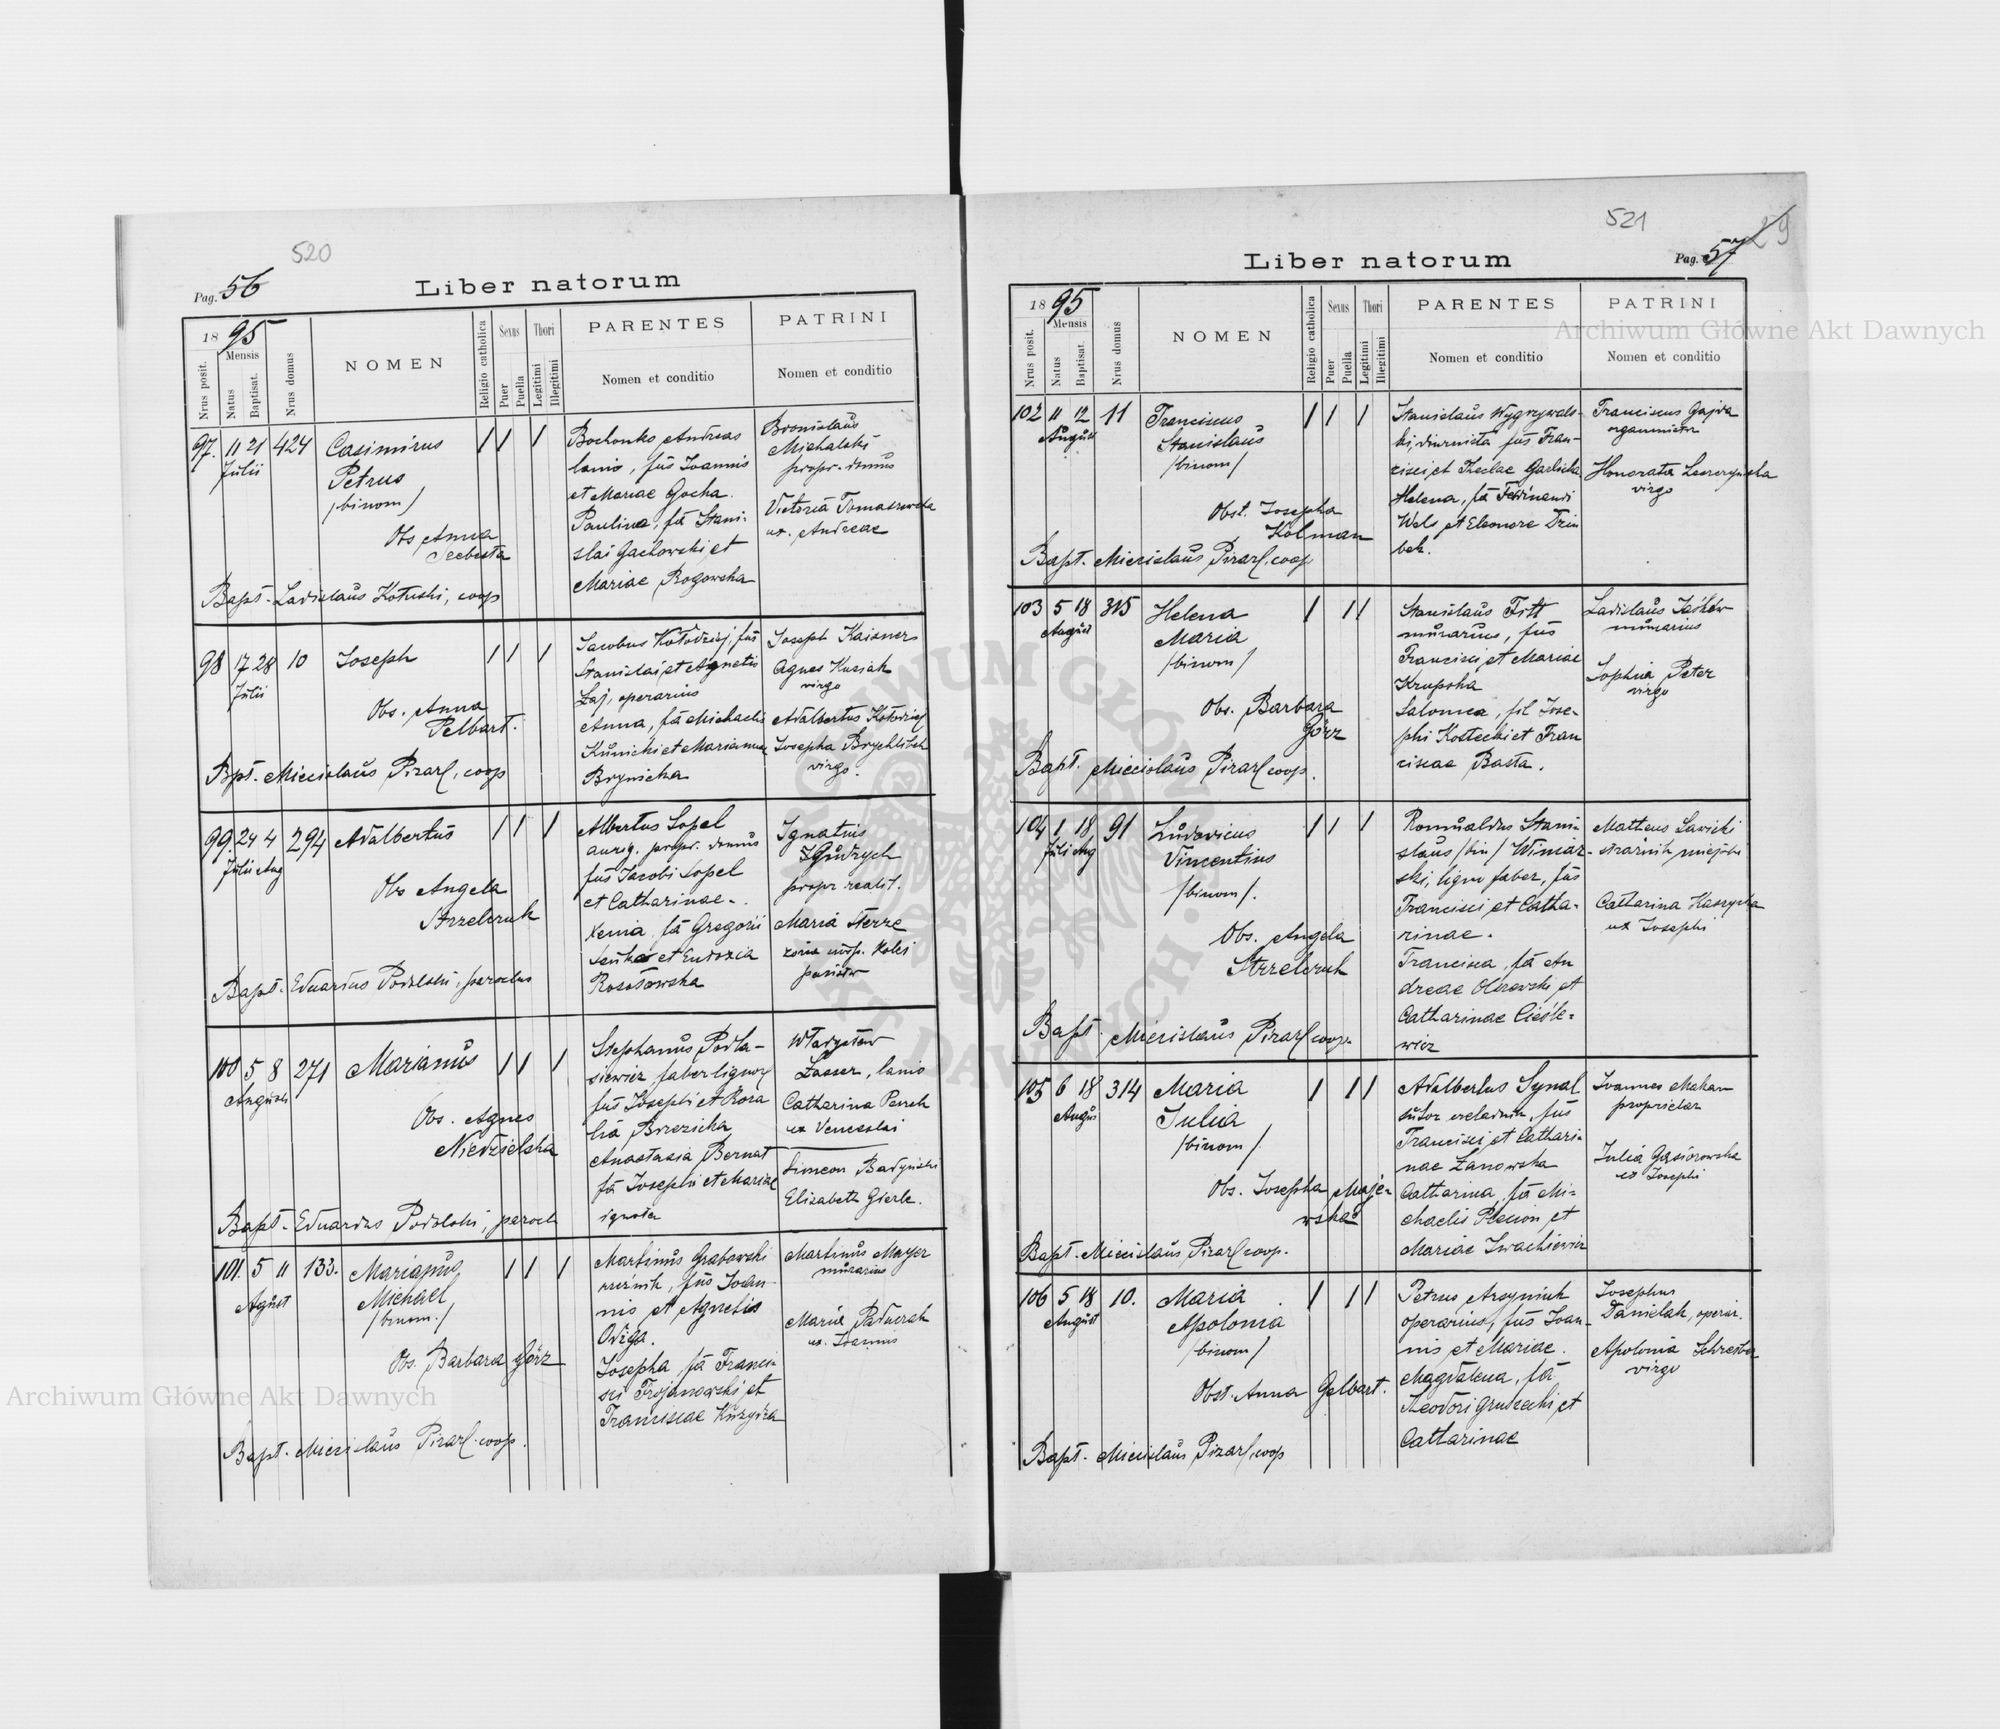 520
Pag. 56
Liber natorum
1895
Mensis
Nrus posit.
Natus
Baptisat.
Nrus domus
NOMEN
Religio catholica
Sexus
Puer
Puella
Thori
Legitimi
Illegitimi
PARENTES
Nomen et conditio
PATRINI
Nomen et conditio
97. 11 21 424 Casimirus
Julii
Petrus
/binom/
Obs Anna
Bapt. Ladislaus Kotuski, coop
Bochonko Andreas
lanio, fůs Joannis
et Mariae Gocha.
Paulina, fa Stani-
slai Gachowski et
Mariae Rogowska
Bronislaus
Michalski
propr. domus
Victoria Tomaszewska
ux. Andreae
98 17 28 10 Joseph
Julii
Obs. Anna
Pelbart.
Bpt. Miecislaus Pizarl, coop
Jacobus Kołodziej, fůs
Stanislai et Agnetis
Zaj, operarius
Anna, fa Michaelis
Kunicki et Marianna
Brynicka
Joseph Kaisner
Agnes Kusiak
virgo
Adalbertus Kołodziej
Josepha
virgo.
99. 24 4 294 Adalbertus
Julii Aug
Obs Angela
Strzelczuk
Bapt. Eduardus Podolski, parochus
Albertus Sopel
aurig. propr. domus
fůs Jacobi Sopel
et Catharinae.
Xenia, fa Gregorii
et Eudoxia
Rosołowska
Ignatius
propr realit.
Maria Sterze
kolei
100 5 8 271 Marianus
Augusti
Obs. Agnes
Niedzielska
Bapt. Eduardus Podolski, paroch
Stephanus Podla-
siewicz, faber lignor
fůs Josephi et Rosa
lia Brzezicka
Anastasia Bernat
fa Josephi et Mariae
ignota
Władysław
Zasser, lanio
Catharina
ux Venceslai
Simeon Badyński
Elisabeth Gierle.
101. 5 11 133. Marianus
Agust
Michael
/binom./
Obs. Barbara Görz
Bapt. Miecislaus Pizarl. coop.
Martinus Grabowski
rzeźnik, fůs Joan-
nis et Agnetis
Ożga.
Josepha, fa Franci-
sci Trojanowski et
Franciscae
Martinus Mayer
murarius
Maria Paduczak
ux. Joannis
521
29
Liber natorum
Pag. 57
1895
Mensis
Nrus posit.
Natus
Baptisat.
Nrus domus
NOMEN
Religio catholica
Sexus
Puer
Puella
Thori
Legitimi
Illegitimi
PARENTES
Nomen et conditio
PATRINI
Nomen et conditio
102 11 12 11 Franciscus
August
Stanislaus
/binom/
Obst. Josepha
Kolman
Bapt. Miecislaus Pizarl. coop
Stanislaus Wygrzywals-
ki, diurnista fůs Fran-
cisci et Theclae Garlicka
Helena, fa Ferdinandi
Wels et Eleonore Dzin
bek.
Franciscus Gajda
organmistr
Honorata Leszczyńska
virgo
103 5 18 315 Helena
August
Maria
/binom/
Obs. Barbara
Görz
Bapt. Miecislaus Pizarl coop.
Stanislaus Fitt
murarius, fůs
Francisci, et Mariae
Krupska
Salomea, fil Jose-
phi Kostecki et Fran
ciscae Basta.
Ladislaus Jaśków
murarius
Sophia Peter
virgo
104 1 18 91 Ludovicus
Juli Aug
Vincentius
/binom/.
Obs. Angela
Strzelczuk
Bapt. Miecislaus Pizarl coop.
Romualdus Stani-
slaus /bin/ Winiar-
ski, lign. faber, fůs
Francisci et Catha-
rinae.
Francisca, fa An
dreae Olszewski et
Catharinae Cieśle-
wicz
Matheus Sawicki
strażnik miejski
Catharina Kaszycka
ux Josephi
105 6 18 314 Maria
August
Julia
/binom/
Obs. Josepha Maje-
wska
Bapt. Miecislaus Pizarl coop.
Adalbertus Synal
sutor czeladnik, fůs
Francisci et Cathari-
nae Zanowska
Catharina, fa Mi-
chaelis Plecion et
Mariae Iwachiewicz
Joannes Makan
proprietar
Julia Gąsiorowska
ux Josephi
106 5 18 10. Maria
August
Apolonia
/binom/
Obst. Anna Gelbart.
Bapt. Miecislaus Pizarl, coop
Petrus Arsyniuk
operarius, fůs Joan-
nis et Mariae.
Magdalena, fa
Theodori Grudzecki et
Catharinae
Josephus
Danielak, operar.
Apolonia Schreiber
virgo
Archiwum Główne Akt Dawnych
Archiwum Główne Akt Dawnych
ARCHIWUM GŁÓWNE AKT DAWNYCH